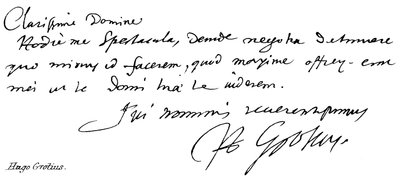 Clarissime Domine
Hodie me Spectacula, Deinde negotia detinuere
quo minus id facerem, quod maxime
mei ut te Domi tuæ te viderem.
Tui nominis reverentissimus
H Grotius.
Hugo Grotius.